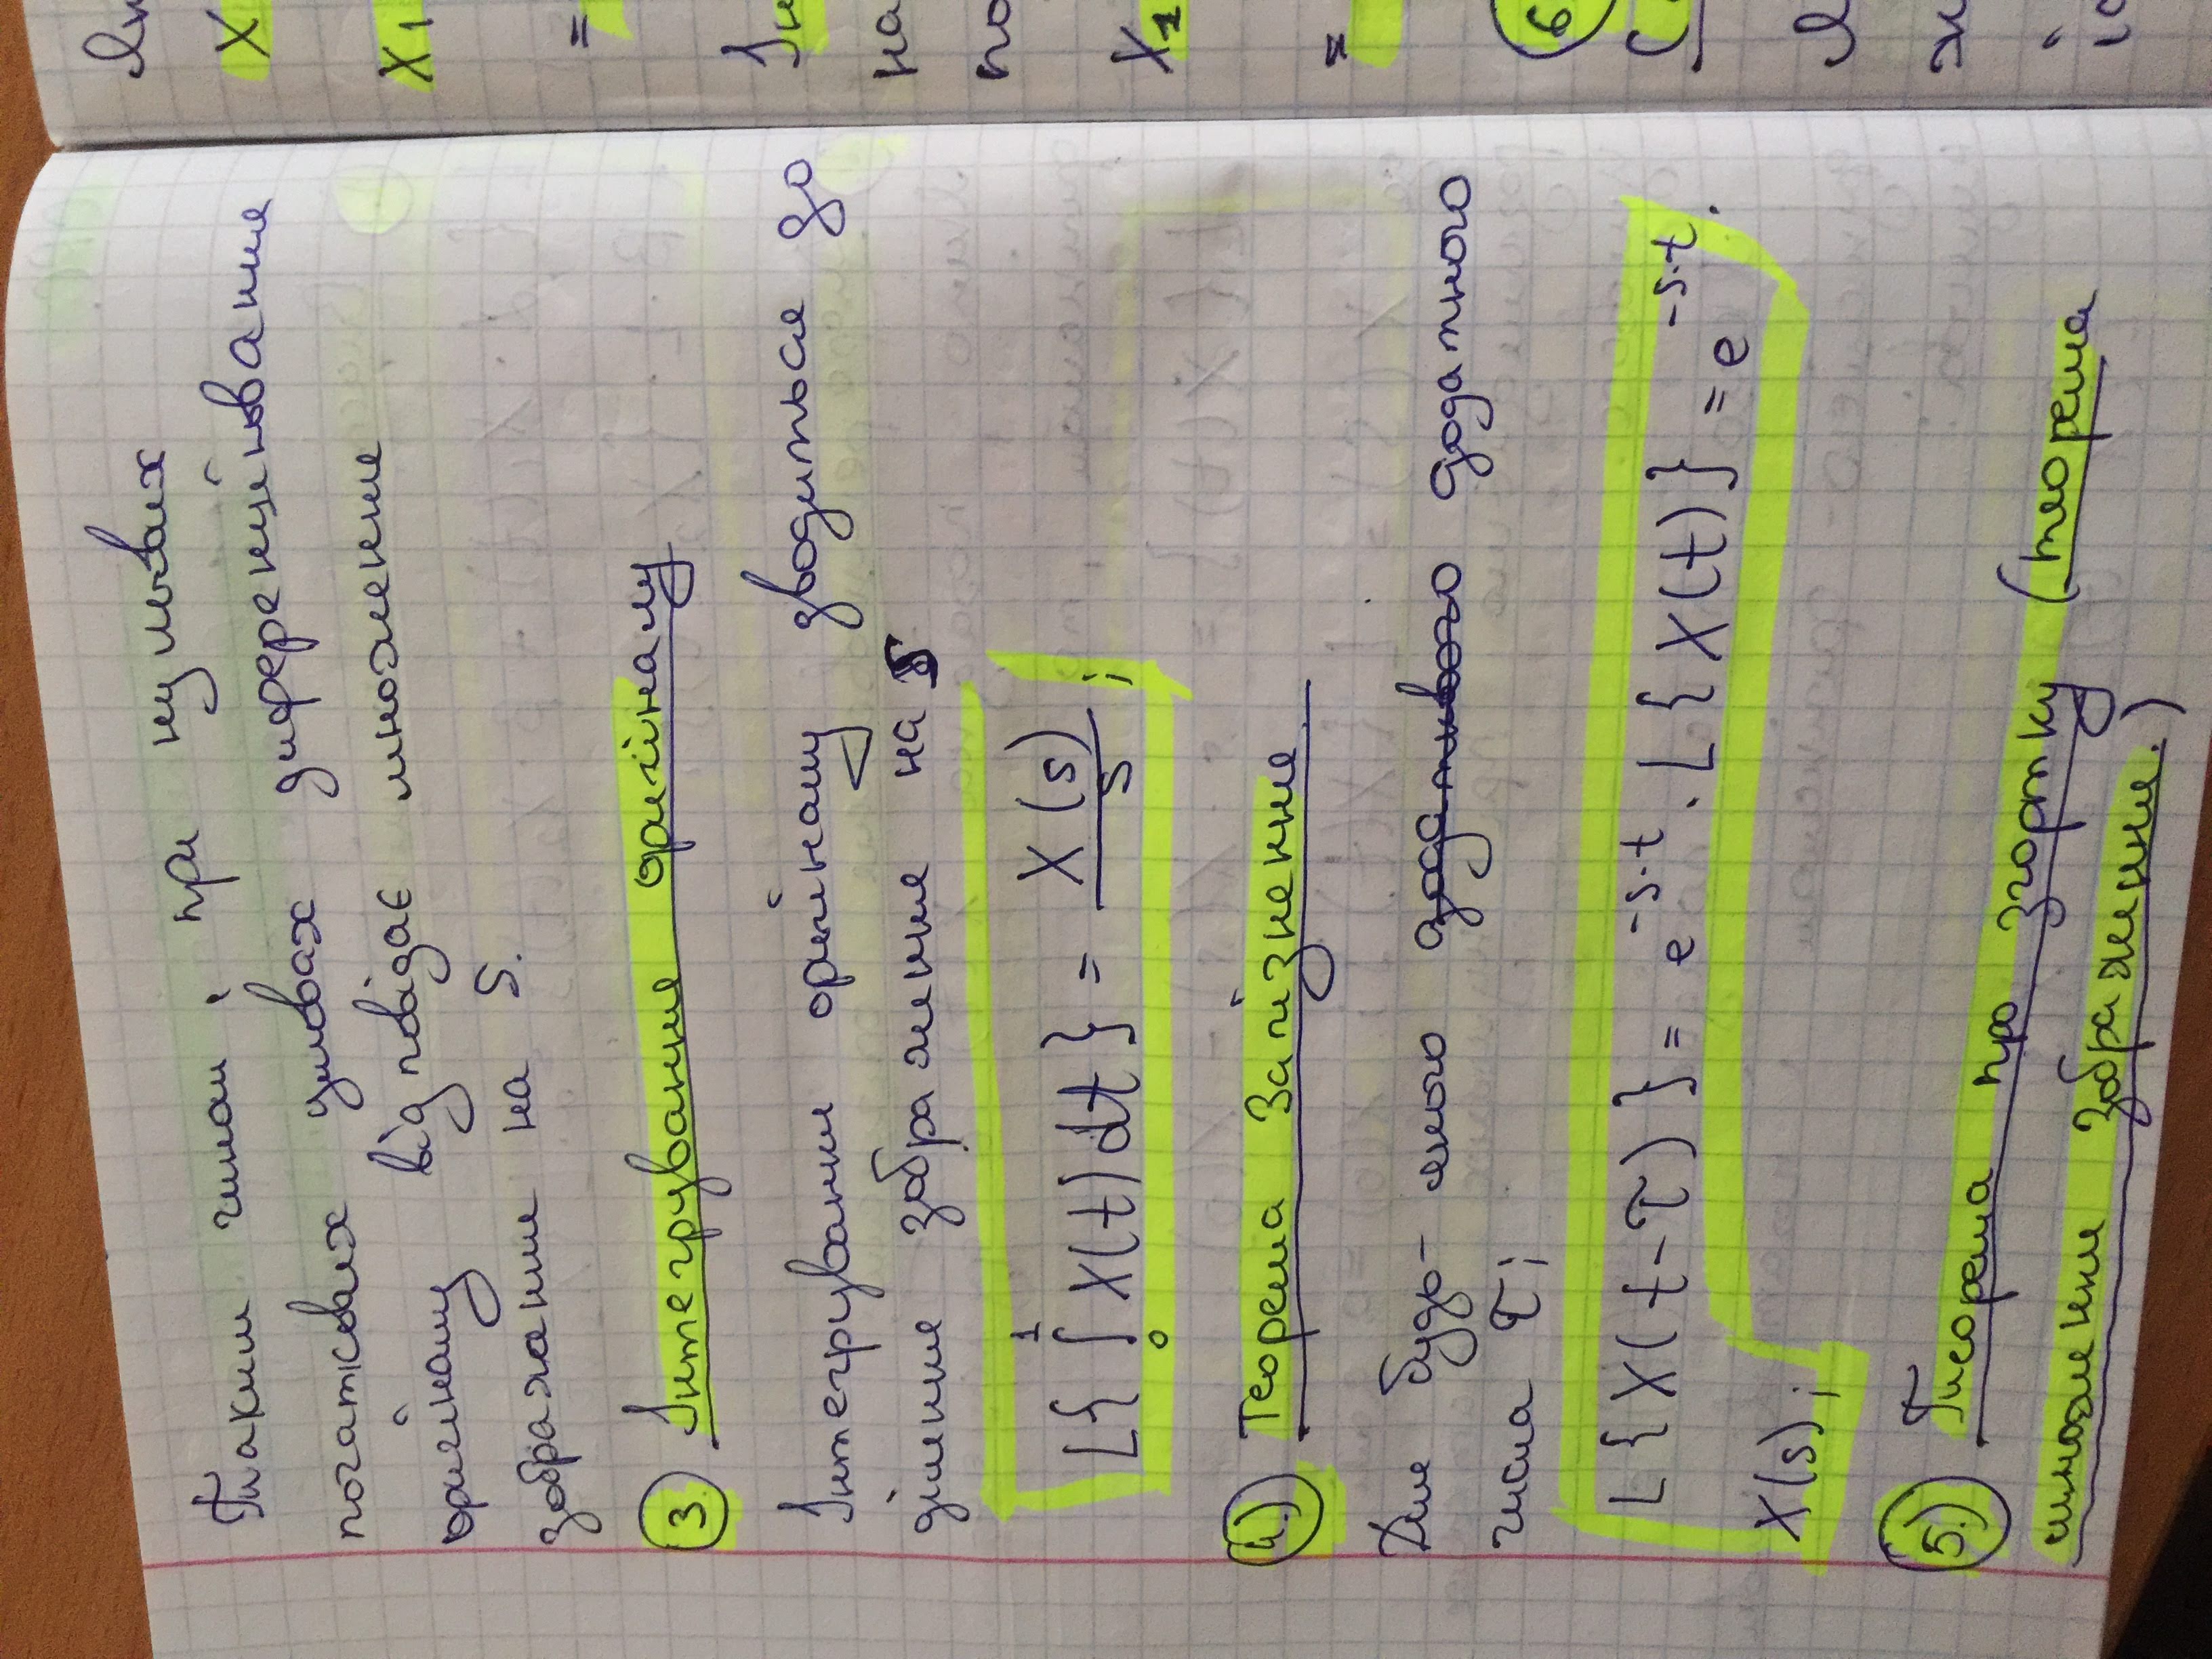 Таким чином, при нульових
початкових умовах диференціювання
оригіналу відповідає множення
зображання на S.
3 Інтегрування оригіналу
Інтегрування оригіналу зводиться до
ділення зображення на S
L{ ∫₀¹ X(t)dt} = X(s)/s ;
4.) Теорема Запізнення.
Для будь-якого додаткового додатного
числа τ;
L{X(t-τ)} = e^{-s·t} · L{X(t)} = e^{-s·t} ·
X(s);
5.) Теорема про згортку (теорема
множення зображення.)
X
X₁
=
Ін
на
по
X₁
=
6